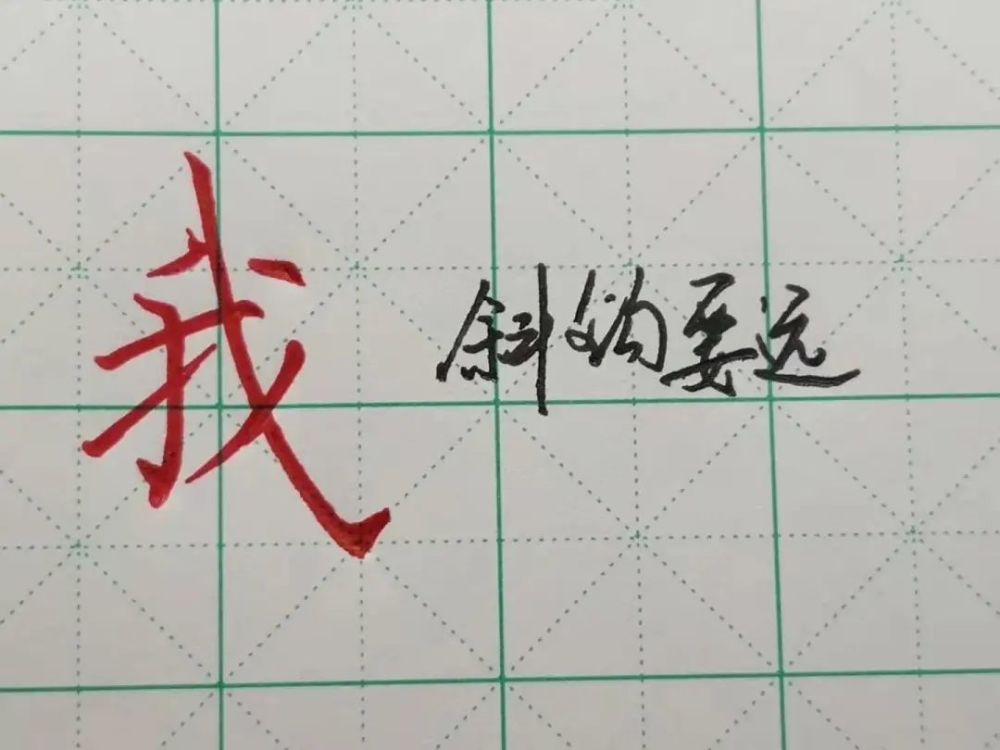 我
斜钩要远